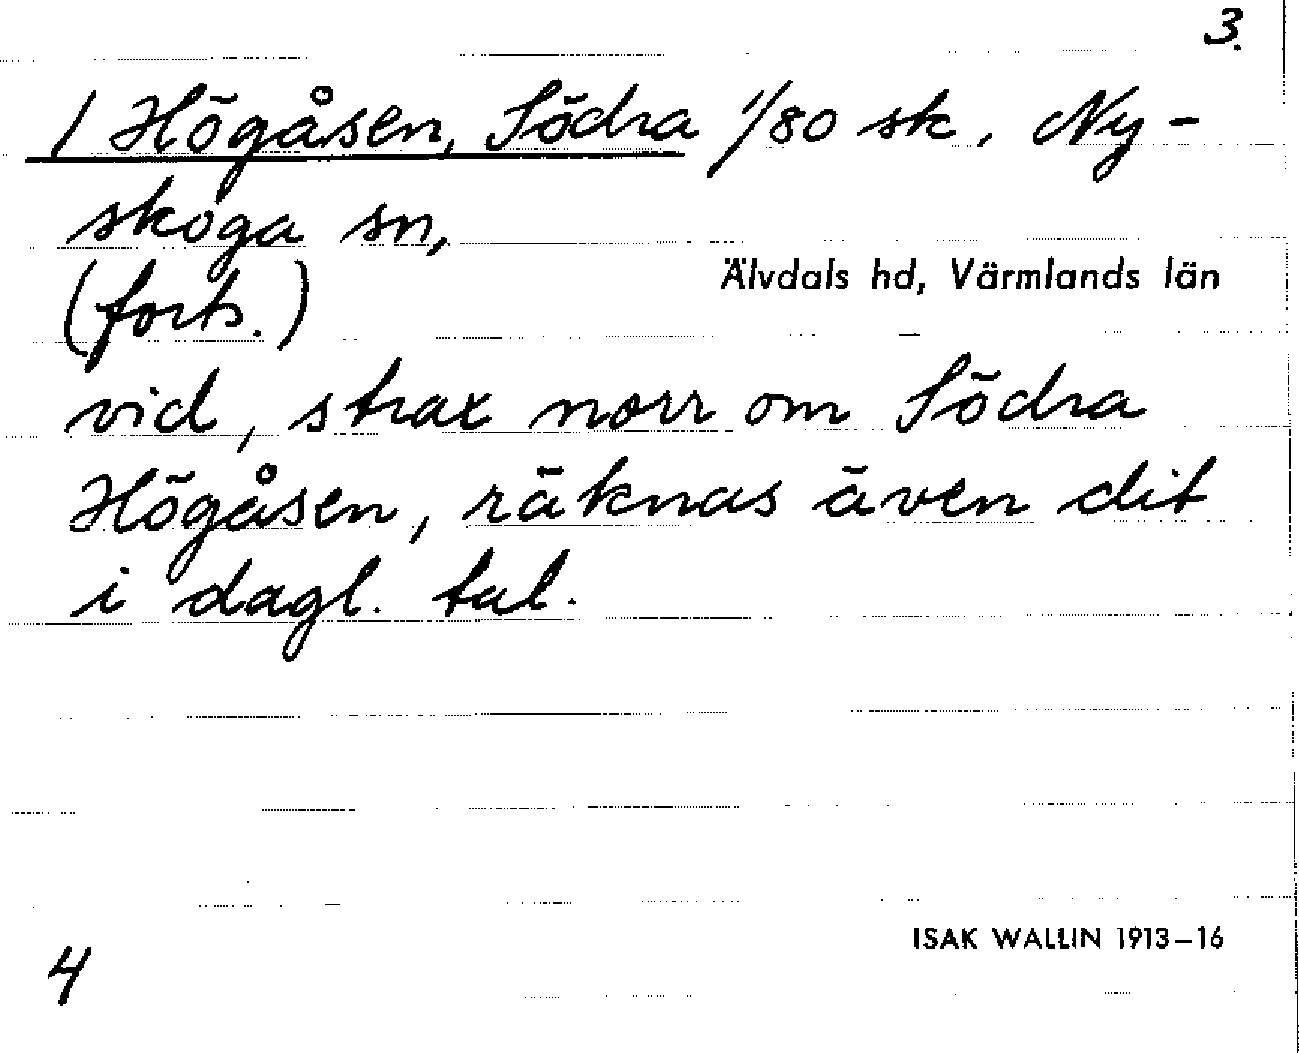 3.
/ Högåsen, Södra 1/80 sk, Ny-
skoga sn,
Älvdals hd, Värmlands län
(forts.)
vid, strax norr om Södra
Högåsen, räknas även dit
i dagl. tal.
ISAK WALLIN 1913–16
4